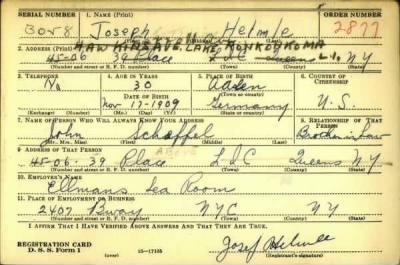 SERIAL NUMBER 1. NAME (Print) ORDER NUMBER
Joseph Helmle 2877
HAWKINS AVE. LAKE RONKONKOMA
2. ADDRESS (Print)
45-06 39 Place L.I.C. Queens L.I. NY
(Number and street or R. F. D. number) (Town) (County) (State)
3. TELEPHONE 4. AGE IN YEARS 5. PLACE OF BIRTH 6. COUNTRY OF CITIZENSHIP
No 30 Aalen
DATE OF BIRTH (Town or county)
Nov 17-1909 Germany U.S.
(Mo.) (Day) (Yr.) (State or country)
7. NAME OF PERSON WHO WILL ALWAYS KNOW YOUR ADDRESS 8. RELATIONSHIP OF THAT PERSON
John Schaffel Brother in Law
(Mr., Mrs., Miss) (First) (Middle) (Last)
9. ADDRESS OF THAT PERSON
45-06-39 Place L.I.C Queens N.Y
(Number and street or R. F. D. number) (Town) (County) (State)
10. EMPLOYER'S NAME
Ellmans Tea Room
11. PLACE OF EMPLOYMENT OR BUSINESS
2407 Bway NYC NY
(Number and street or R. F. D. number) (Town) (County) (State)
I AFFIRM THAT I HAVE VERIFIED ABOVE ANSWERS AND THAT THEY ARE TRUE.
REGISTRATION CARD
D. S. S. Form 1 16-17105 (Registrant's signature)